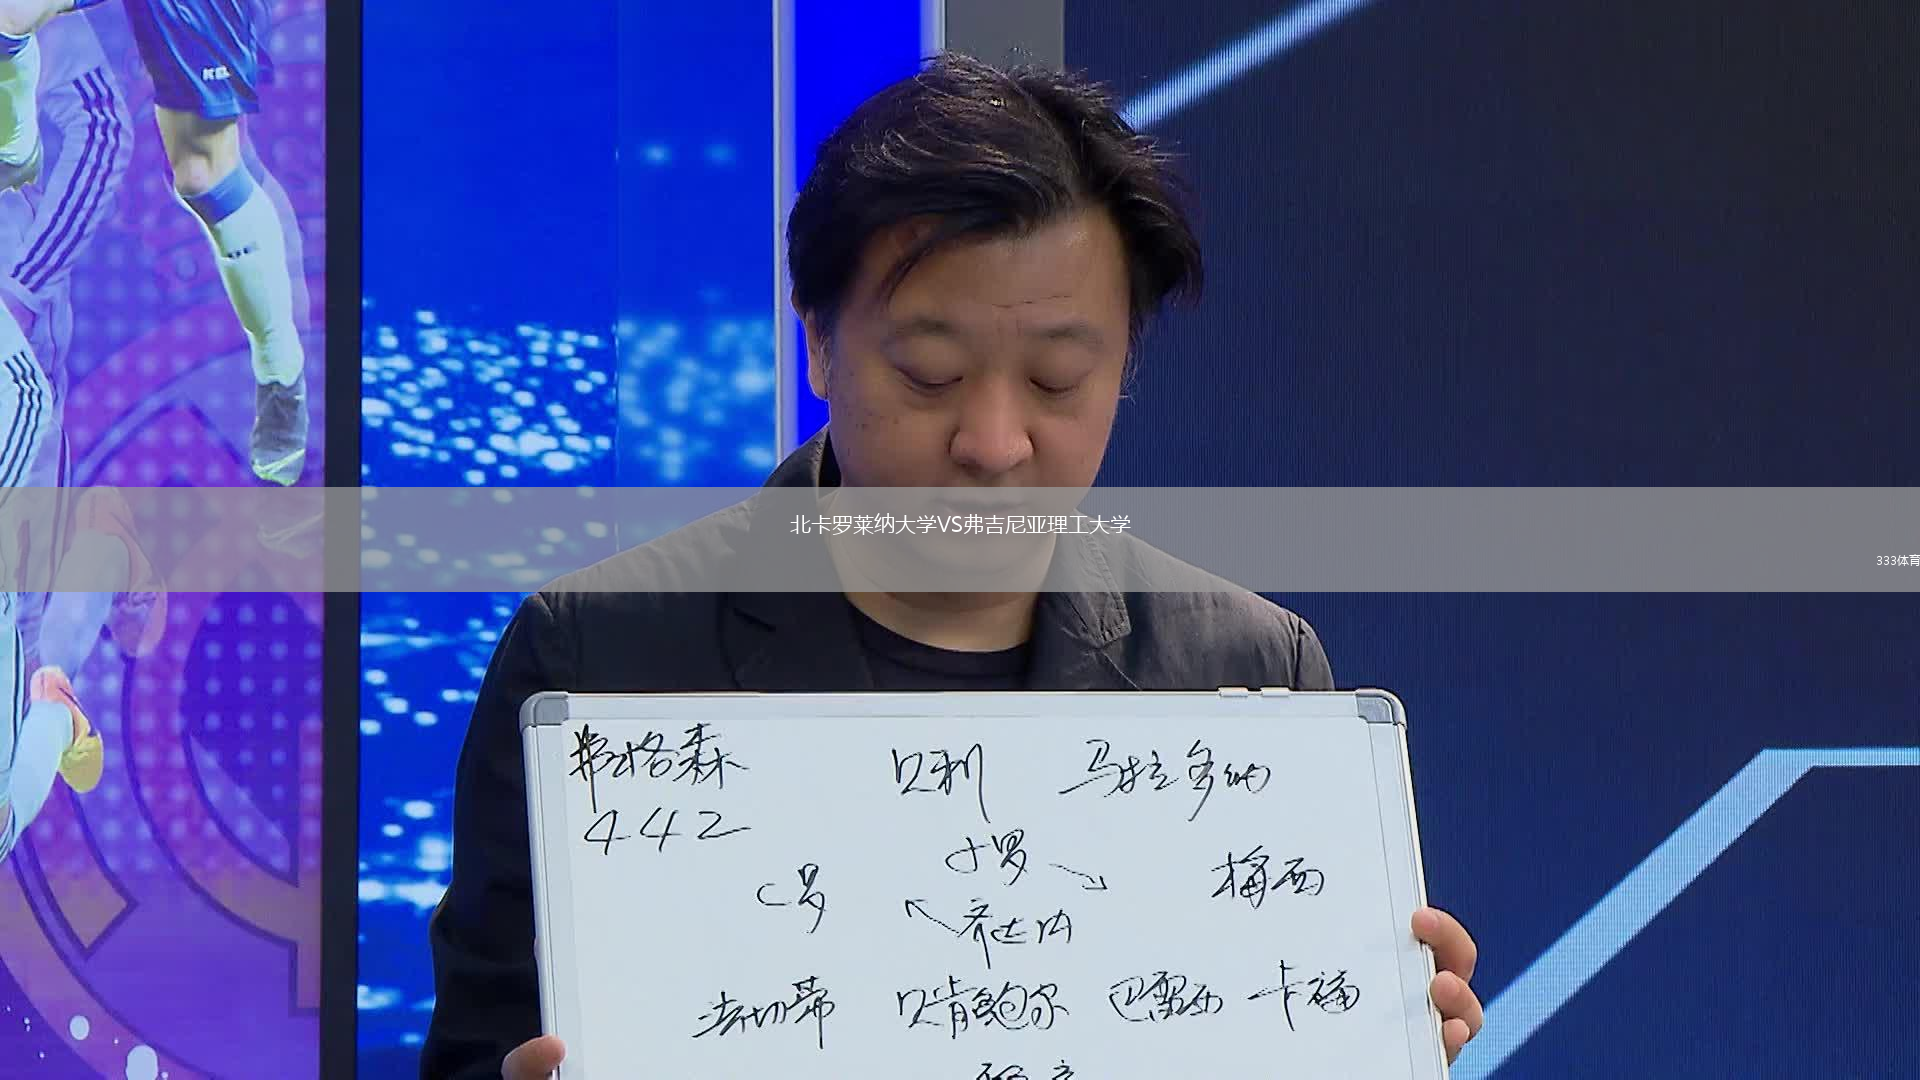 北卡罗莱纳大学VS弗吉尼亚理工大学
333体育
弗格森 贝利 马拉多纳
442
小罗
C罗 梅西
齐达内
法切蒂 贝肯鲍尔 巴雷西 卡福